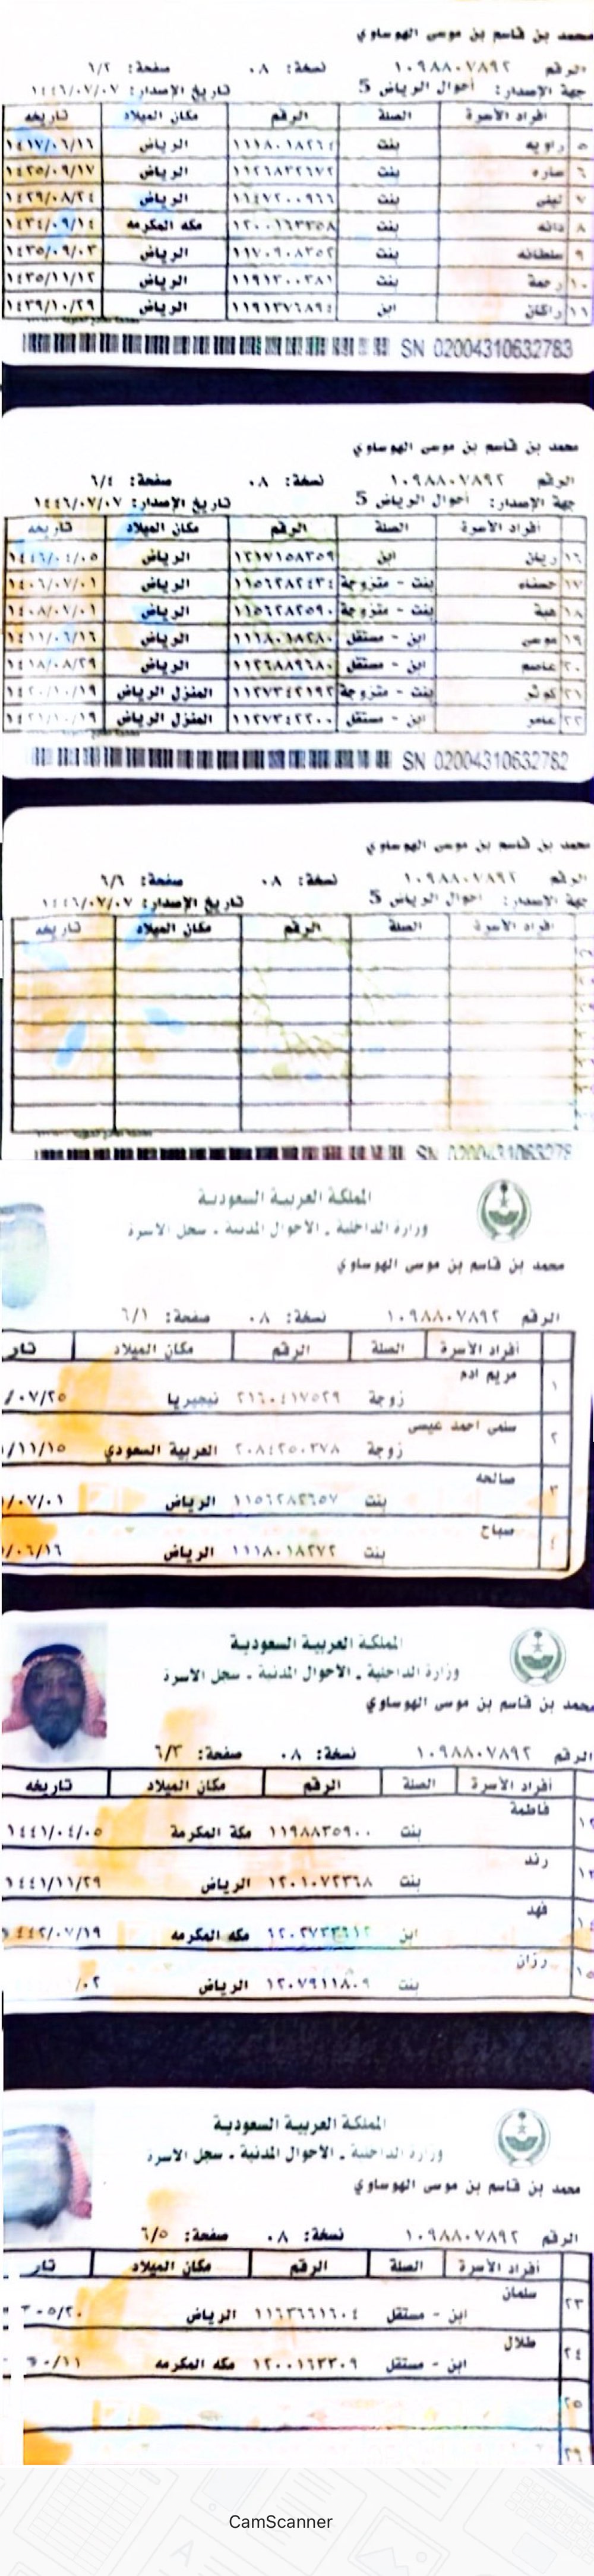 محمد بن قاسم بن موسى الهوساوي
الرقم ١٠٩٨٨٠٧٨٩٢ نسخة: ٠٨ صفحة: ٦/٢
جهة الإصدار: أحوال الرياض 5 تاريخ الإصدار: ١٤٤٦/٠٧/٠٧
أفراد الأسرة الصلة الرقم مكان الميلاد تاريخه
٥ راويه بنت الرياض ١٤١٧/٠٦/١٦
٦ ساره بنت الرياض ١٤٢٥/٠٩/١٧
٧ لبنى بنت الرياض ١٤٢٩/٠٨/٢٤
٨ دانه بنت ١٢٠٠١٦٣٣٥٨ مكه المكرمه ١٤٣٤/٠٩/١٤
٩ سلطانه بنت ١١٧٠٩٠٨٣٥٢ الرياض ١٤٣٥/٠٩/٠٣
١٠ رحمة بنت ١١٩١٣٠٠٣٨١ الرياض ١٤٣٥/١١/١٢
١١ راكان ابن ١١٩١٣٧٦٨٩٤ الرياض ١٤٣٩/١٠/٢٩
SN 02004310632783
محمد بن قاسم بن موسى الهوساوي
الرقم ١٠٩٨٨٠٧٨٩٢ نسخة: ٠٨ صفحة: ٦/٤
جهة الإصدار: أحوال الرياض 5 تاريخ الإصدار: ١٤٤٦/٠٧/٠٧
أفراد الأسرة الصلة الرقم مكان الميلاد تاريخه
١٦ ريان ابن ١٢١٧١٥٨٣٥٩ الرياض ١٤٤٦/٠٤/٠٥
١٧ حسناء بنت - متزوجة ١١٥٦٢٨٢٤٣٤ الرياض ١٤٠٦/٠٧/٠١
١٨ هبة بنت - متزوجة ١١٥٦٢٨٢٥٩٠ الرياض ١٤٠٨/٠٧/٠١
١٩ موسى ابن - مستقل ١١١٨٠١٨٢٨٠ الرياض ١٤١١/٠٦/١٦
٢٠ عاصم ابن - مستقل ١١٢٦٨٨٩٦٨٠ الرياض ١٤١٨/٠٨/٢٩
٢١ كوثر بنت - متزوجة ١١٢٧٣٤٢١٩٢ المنزل الرياض ١٤٢٠/١٠/١٩
٢٢ عامر ابن - مستقل ١١٢٧٣٤٢٢٠٠ المنزل الرياض ١٤٢١/١٠/١٩
SN 02004310632782
محمد بن قاسم بن موسى الهوساوي
الرقم ١٠٩٨٨٠٧٨٩٢ نسخة: ٠٨ صفحة: ٦/٦
جهة الإصدار: أحوال الرياض 5 تاريخ الإصدار: ١٤٤٦/٠٧/٠٧
أفراد الأسرة الصلة الرقم مكان الميلاد تاريخه
المملكة العربية السعودية
وزارة الداخلية . الأحوال المدنية . سجل الاسرة
محمد بن قاسم بن موسى الهوساوي
الرقم ١٠٩٨٨٠٧٨٩٢ نسخة: ٠٨ صفحة: ٦/١
أفراد الأسرة الصلة الرقم مكان الميلاد تار
١ مريم ادم
زوجة ٢١٦٠٤١٧٥٢٩ نيجيريا /٠٧/٢٥
٢ سلمى احمد عيسى
زوجة ٢٠٨٤٢٥٠٣٧٨ العربية السعودي /١١/١٥
٣ صالحه
بنت ١١٥٦٢٨٢٦٥٧ الرياض /٠٧/٠١
٤ صباح
بنت ١١١٨٠١٨٢٧٢ الرياض /٠٦/١٦
المملكة العربية السعودية
وزارة الداخلية . الأحوال المدنية . سجل الاسرة
محمد بن قاسم بن موسى الهوساوي
الرقم ١٠٩٨٨٠٧٨٩٢ نسخة: ٠٨ صفحة: ٦/٣
أفراد الأسرة الصلة الرقم مكان الميلاد تاريخه
١٢ فاطمة
بنت ١١٩٨٨٣٥٩٠٠ مكة المكرمة ١٤٤١/٠٤/٠٥
١٣ رند
بنت ١٢٠١٠٧٢٣٦٨ الرياض ١٤٤١/١١/٢٩
١٤ فهد
ابن مكه المكرمه ٤٤٢/٠٧/١٩
١٥ رزان
بنت ١٢٠٧٩١١٨٠٩ الرياض /٠٢
المملكة العربية السعودية
وزارة الداخلية . الأحوال المدنية . سجل الاسرة
محمد بن قاسم بن موسى الهوساوي
الرقم ١٠٩٨٨٠٧٨٩٢ نسخة: ٠٨ صفحة: ٦/٥
أفراد الأسرة الصلة الرقم مكان الميلاد تار
٢٣ سلمان
ابن - مستقل ١١٦٣٦٦١٦٠٤ الرياض ٠٥/٢٠
٢٤ طلال
ابن - مستقل ١٢٠٠١٦٣٣٠٩ مكه المكرمه /١١
٢٥
٢٦
CamScanner